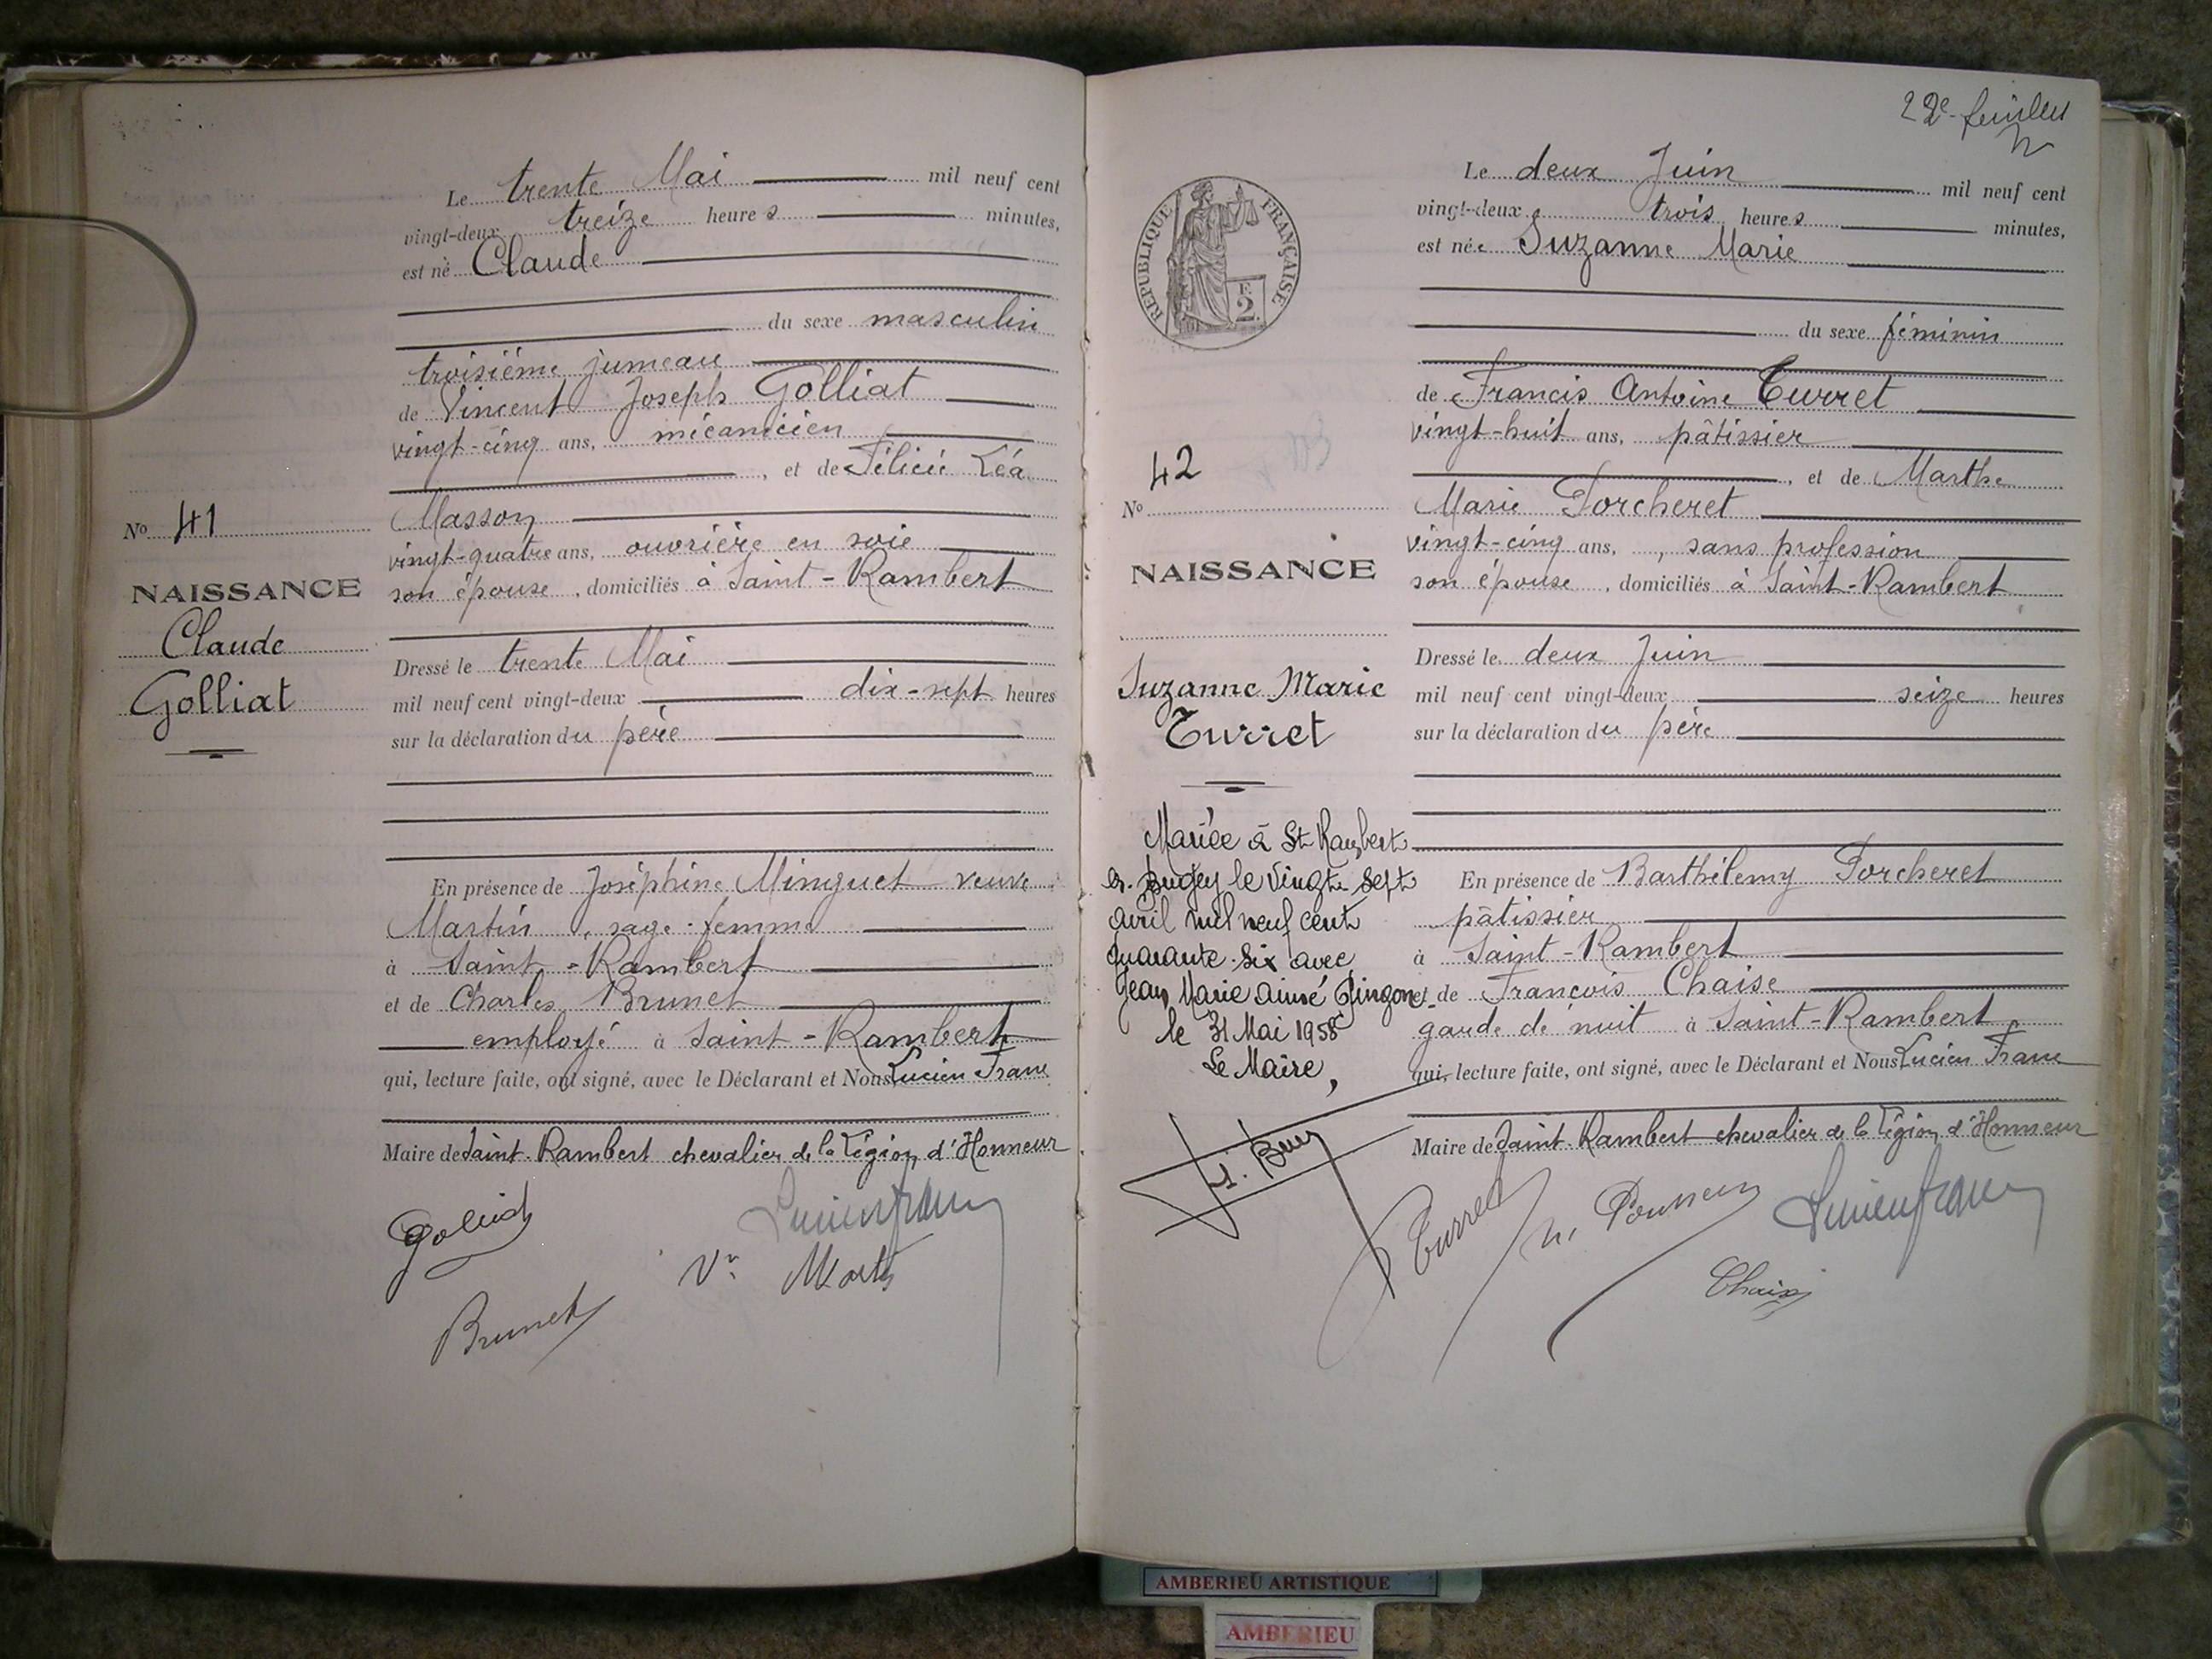 Le trente Mai mil neuf cent
vingt-deux treize heures minutes,
est né Claude
du sexe masculin
troisième jumeau
de Vincent Joseph Golliat
vingt-cinq ans, mécanicien
, et de Félicie Léa
Masson
vingt-quatre ans, ouvrière en soie
son épouse, domiciliés à Saint-Rambert
Dressé le trente Mai
mil neuf cent vingt-deux dix-sept heures
sur la déclaration du père
En présence de Joséphine Minguet veuve
Martin, sage-femme
à Saint-Rambert
et de Charles Brunet
employé à Saint-Rambert
qui, lecture faite, ont signé, avec le Déclarant et Nous Lucien Franc
Maire de Saint-Rambert chevalier de la Légion d'Honneur
Brunet
No 41
NAISSANCE
Claude
Golliat
22e feuillet
RÉPUBLIQUE FRANÇAISE
F.
2
Le deux Juin mil neuf cent
vingt-deux trois heures minutes,
est née Suzanne Marie
du sexe féminin
de Francis Antoine Turret
vingt-huit ans, pâtissier
, et de Marthe
Marie Porcheret
vingt-cinq ans, , sans profession
son épouse, domiciliés à Saint-Rambert
Dressé le deux Juin
mil neuf cent vingt-deux seize heures
sur la déclaration du père
En présence de Barthélemy Porcheret
pâtissier
à Saint-Rambert
et de François Chaise
garde de nuit à Saint-Rambert
qui, lecture faite, ont signé, avec le Déclarant et Nous Lucien Franc
Maire de Saint Rambert chevalier de la Légion d'Honneur
Turret
No 42
NAISSANCE
Suzanne Marie
Turret
Mariée à St Rambert
en Bugey le Vingt-Sept
avril mil neuf cent
quarante-six avec
Jean Marie Aimé
le 31 Mai 1958
Le Maire,
AMBERIEU ARTISTIQUE
AMBERIEU